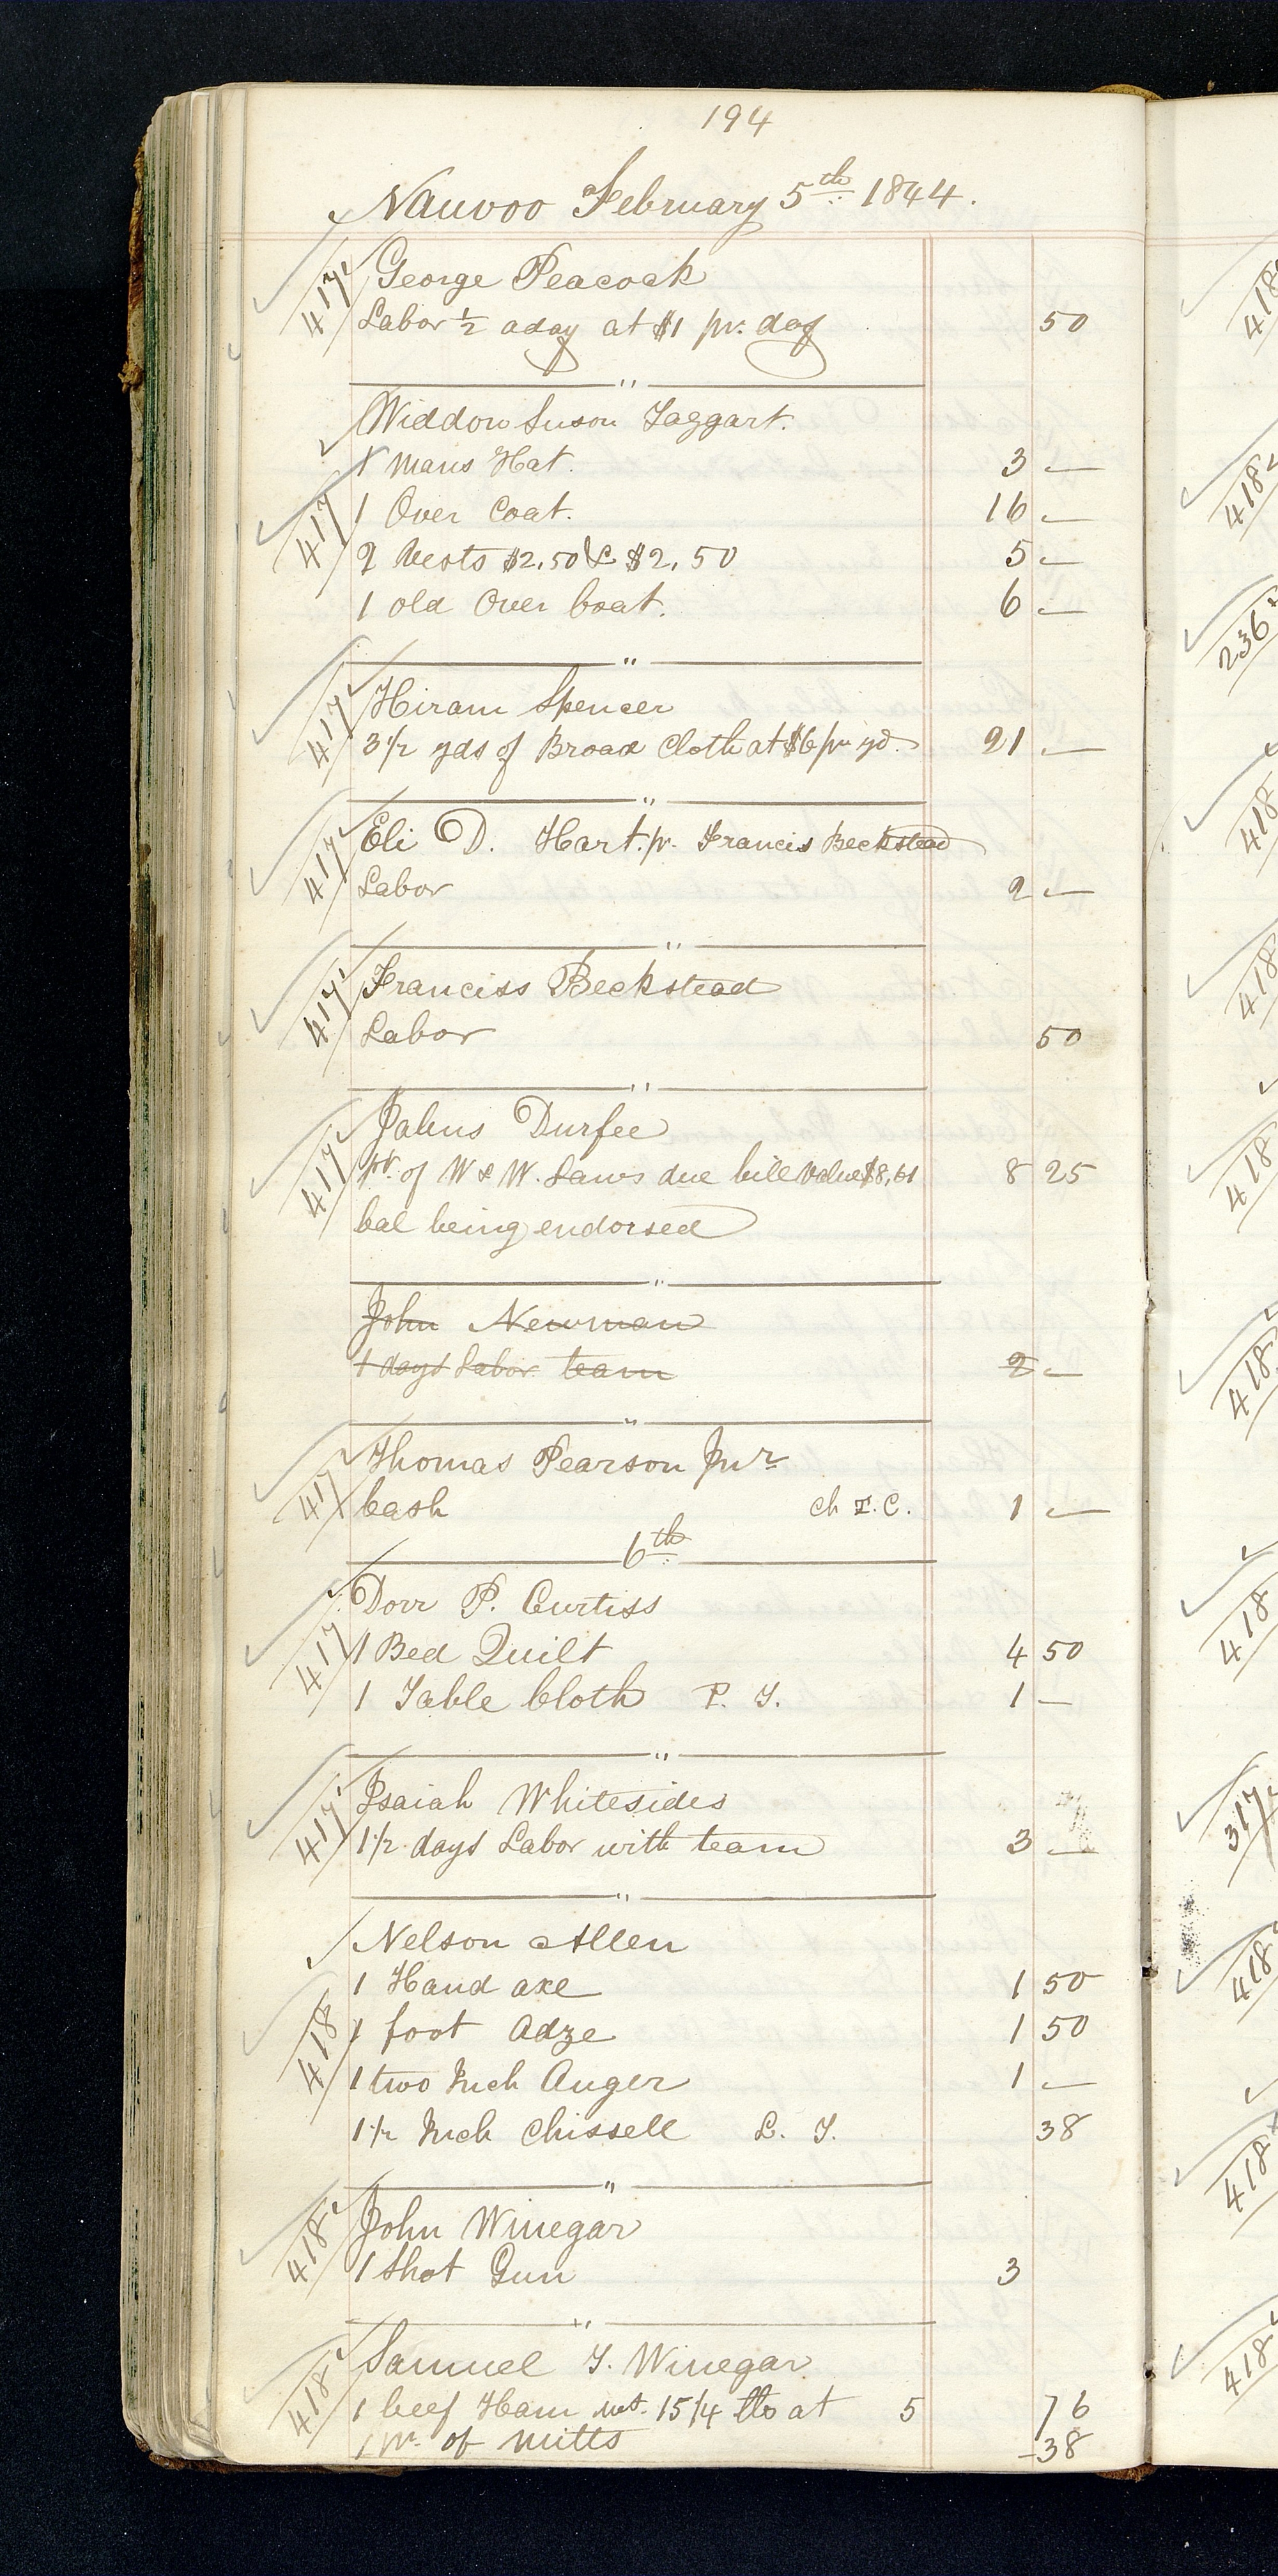 194
Nauvoo February 5th 1844.
417 George Peacock
Labor 1/2 a day at $1 pr. day 50
"
Widdow Suson Taggart.
1 Mans Hat. 3 —
417 1 Over Coat. 16 —
2 Vests $2,50 & $2,50 5 —
1 old Over Coat. 6 —
"
417 Hiram Spencer
3 1/2 yds of Broad Cloth at $6 pr yd. 21 —
"
417 Eli D. Hart. pr. Francis Beckstead
Labor 2 —
"
417 Franciss Beckstead
Labor 50
"
417 Jabus Durfee
pr. of W & W. Laws due bill value $8,61 8 25
bal being endorsed
"
John Newman
1 days Labor team 2 —
"
417 Thomas Pearson Junr
Cash ch T. C. 1 —
6th
417 Dorr P. Curtiss
1 Bed Quilt 4 50
1 Table Cloth P. T. 1 —
"
417 Isaiah Whitesides
1 1/2 days Labor with team 3 —
"
Nelson Allen
1 Hand axe 1 50
418 1 foot Adze 1 50
1 two Inch Auger 1 —
1 1/2 Inch Chissell L. T. 38
"
418 John Winegar
1 Shot Gun 3
"
418 Samuel T. Winegar
1 beef Ham wt. 15 1/4 lbs at 5 76
1 pr. of mitts 38
418
418
236
418
418
418
418
418
317
418
418
418